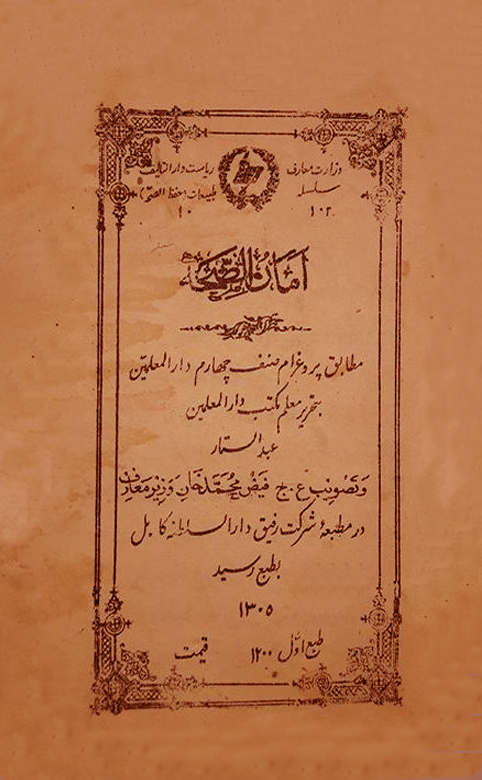 وزارت معارف
ریاست دارالتالیف
سلسله
طبیعیات (حفظ الصحّه)
۱۰۲
۱۰
اَمَانُ الصِّحَّه
مطابق پروغرام صنف چهارم دارالمعلمین
بتحریر معلم مکتب دارالمعلمین
عبدالستار
وَتَصْوِیْبِ ع. ج فَیْضْ مُحَمَّدْ خَانِ وَزِیْرِ مَعَارِفْ
در مطبعهٔ شرکت رفیق دارالسلطنه کابل
بطبع رسید
۱۳۰۵
طبع اوّل ۱۲۰۰ قیمت